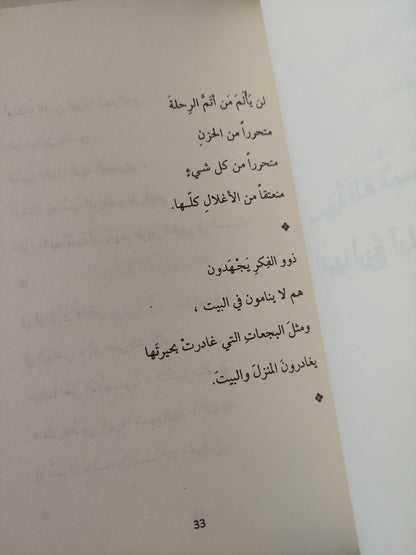 لن يَأْلَمَ مَن أتَمَّ الرِحلةَ
متحرراً من الحزنِ
متحرراً من كل شيءٍ
منعتقاً من الأغلالِ كلّها.
ذوو الفِكرِ يَجْهَدون
هم لا ينامون في البيت ،
ومثلَ البجعاتِ التي غادرتْ بحيرتَها
يغادرونَ المنزلَ والبيتَ.
33